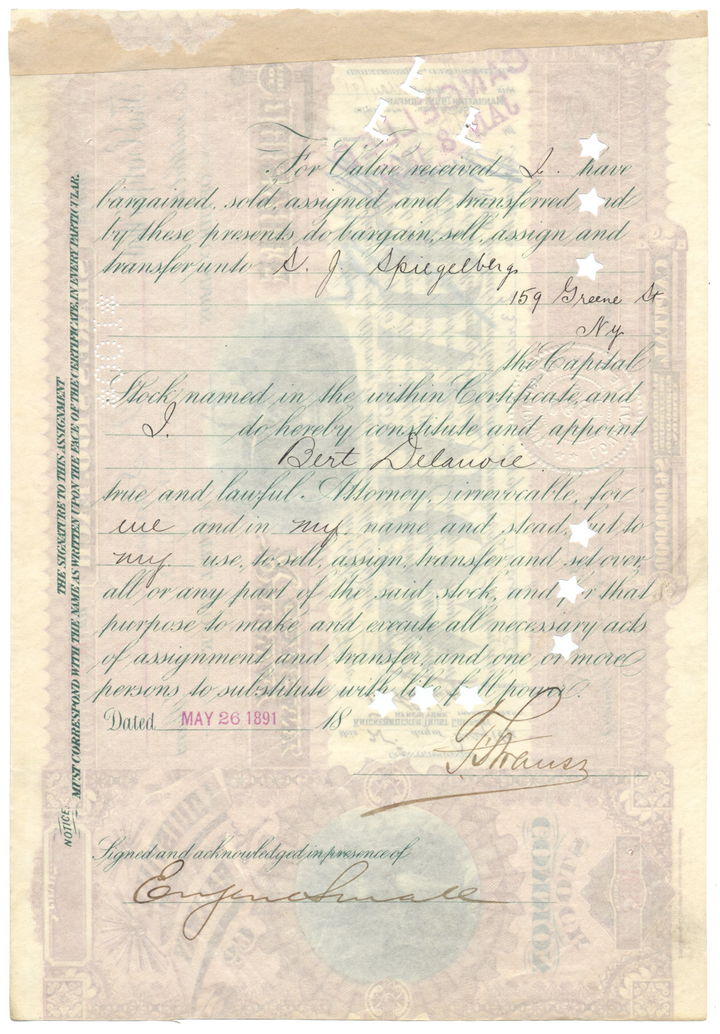 For Value received I have
bargained, sold, assigned and transferred and
by these presents do bargain, sell, assign and
transfer unto S. J. Spiegelberg
159 Greene St
Ny
the Capital
Stock named in the within Certificate, and
I do hereby constitute and appoint
Bert Delavoie
true and lawful Attorney, irrevocable, for
me and in my name and stead, but to
my use, to sell, assign, transfer and set over,
all or any part of the said stock, and for that
purpose to make and execute all necessary acts
of assignment and transfer, and one or more
persons to substitute with like full power.
Dated MAY 26 1891 18
F Strauss
Signed and acknowledged in presence of
Eugene Small
NOTICE.
THE SIGNATURE TO THIS ASSIGNMENT
MUST CORRESPOND WITH THE NAME AS WRITTEN UPON THE FACE OF THE CERTIFICATE, IN EVERY PARTICULAR.